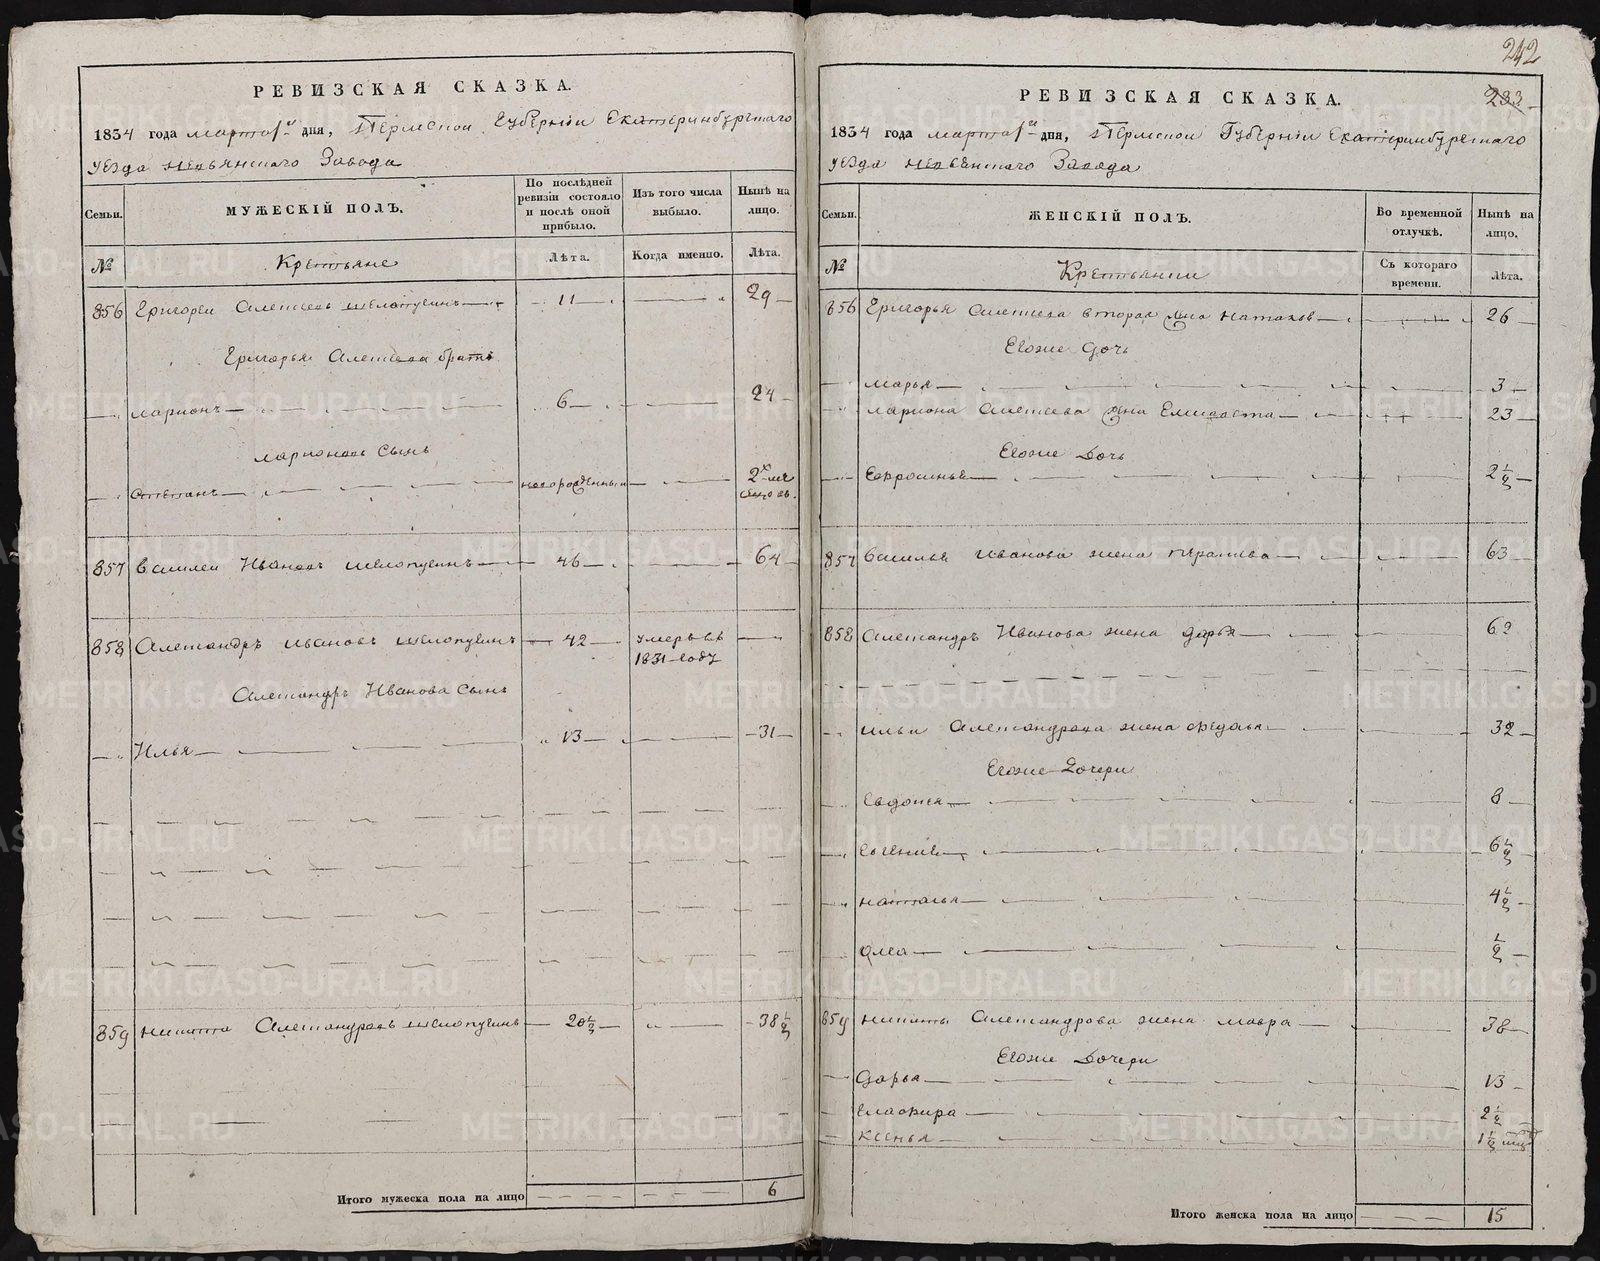 242
РЕВИЗСКАЯ СКАЗКА.
1834 года марта 1го дня, Пермской Губернiи Екатеринбургскаго
уезда Невьянскаго Завода
Семьи.
МУЖЕСКIЙ ПОЛЪ.
По послѣдней ревизiи состояло и послѣ оной прибыло.
Изъ того числа выбыло.
Нынѣ на лицо.
№
Крестьяне
Лѣта.
Когда именно.
Лѣта.
856 Григореи Алексеевъ Шелопугинъ 11 29
Григорья Алексеева братъ
Ларионъ 6 24
Ларионовъ Сынъ
Степанъ новорожденный 2хъ
857 Василеи Ивановъ Шелопугинъ 46 64
858 Александръ Ивановъ Шелопугинъ 42 умеръ въ
1831 году
Александръ Иванова Сынъ
Илья 13 31
859 Никита Александровъ Шелопугинъ 20½ 38½
Итого мужеска пола на лицо 6
РЕВИЗСКАЯ СКАЗКА.
233
1834 года марта 1го дня, Пермской Губернiи Екатеринбургскаго
уезда Невьянскаго Завода
Семьи.
ЖЕНСКIЙ ПОЛЪ.
Во временной отлучкѣ.
Нынѣ на лицо.
№
Крестьянки
Съ котораго времени.
Лѣта.
856 Григорья Алексеева вторая жена 26
Евоже дочь
Марья 3
Лариона Алексеева жена 23
Евоже Дочь
Ефросинья 2½
857 Василья Иванова жена 63
858 Александръ Иванова жена Дарья 62
Ильи Александрова жена Федосья 32
Евоже Дочери
Евдокея 8
Евгения 6½
Наталья 4½
½
859 Никиты Александрова жена Мавра 38
Евоже Дочери
Дарья 13
Глафира 2½
Ксенья 1½
Итого женска пола на лицо 15
METRIKI.GASO-URAL.RU